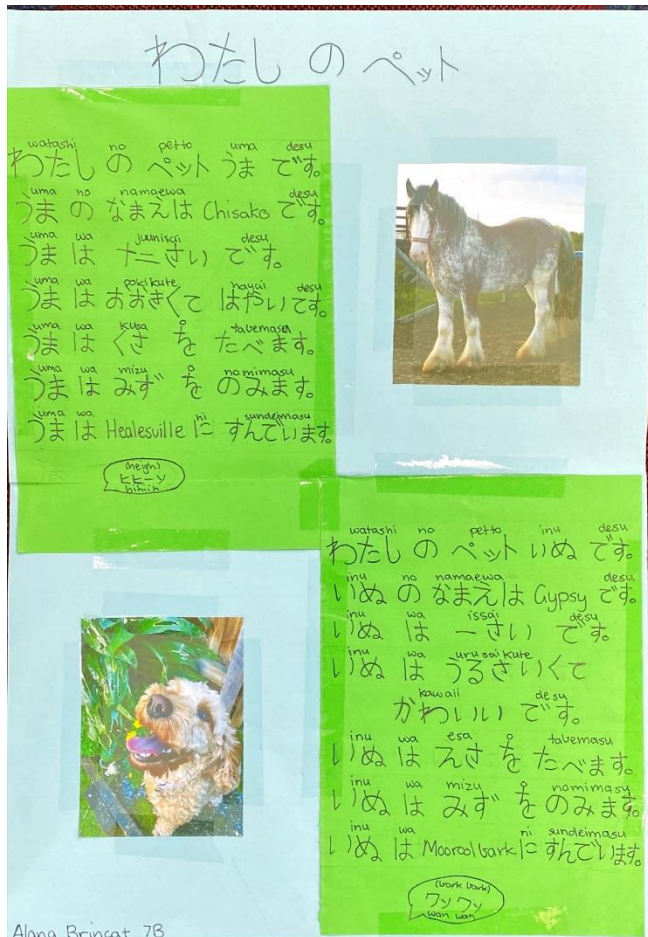 わたし の ペット
watashi no petto uma desu
わたし の ペット うま です。
uma no namaewa desu
うま の なまえは Chisako です。
uma wa juunisai desu
うま は 十二さい です。
uma wa ookikute hayai desu
うま は おおきくて はやいです。
uma wa kusa o tabemasu
うま は くさ を たべます。
uma wa mizu o nomimasu
うま は みず を のみます。
uma wa ni sundeimasu
うま は Healesville に すんでいます。
(neigh)
ヒヒーン
hihiin
watashi no petto inu desu
わたし の ペット いぬ です。
inu no namaewa desu
いぬ の なまえは Gypsy です。
inu wa issai desu
いぬ は 一さい です。
inu wa urusaikute
いぬ は うるさいくて
kawaii desu
かわいい です。
inu wa esa o tabemasu
いぬ は えさ を たべます。
inu wa mizu o nomimasu
いぬ は みず を のみます。
inu wa ni sundeimasu
いぬ は Mooroolbark に すんでいます。
(bark bark)
ワン ワン
wan wan
Alana Brincat 7B